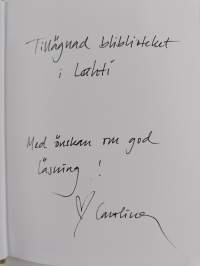 Tillägnad bliblioteket
i Lahti
Med önskan om god
läsning !
♡ Caroline